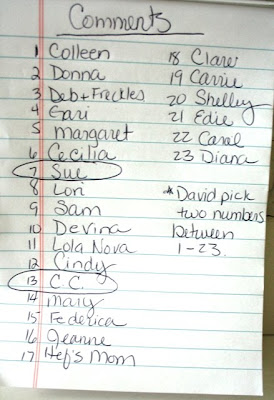 Comments
1 Colleen
2 Donna
3 Deb + Freckles
4 Eari
5 margaret
6 Cecilia
7 Sue
8 Lori
9 Sam
10 Devina
11 Lola Nova
12 Cindy
13 C.C.
14 Mary
15 Federica
16 Jeanne
17 Hef's Mom
18 Clare
19 Carrie
20 Shelley
21 Edie
22 Carol
23 Diana
*David pick
two numbers
between
1-23.